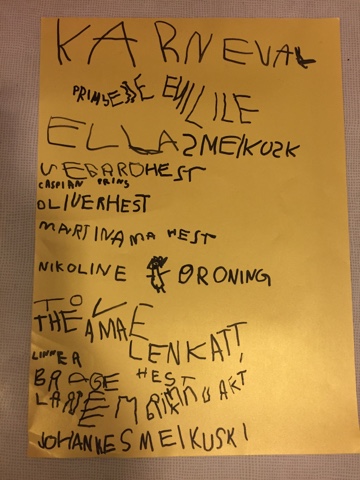 KARNEVAL
PRINSESSE EMILIE
ELLA SMEIKUSK
VEGARDHEST
CASPIAN PRINS
OLIVERHEST
MARTINAMA HEST
NIKOLINE ØRONING
THEAMAE
LENKATT
LINNEA
BRAGE HEST
JOHANKESMEIKUSKI